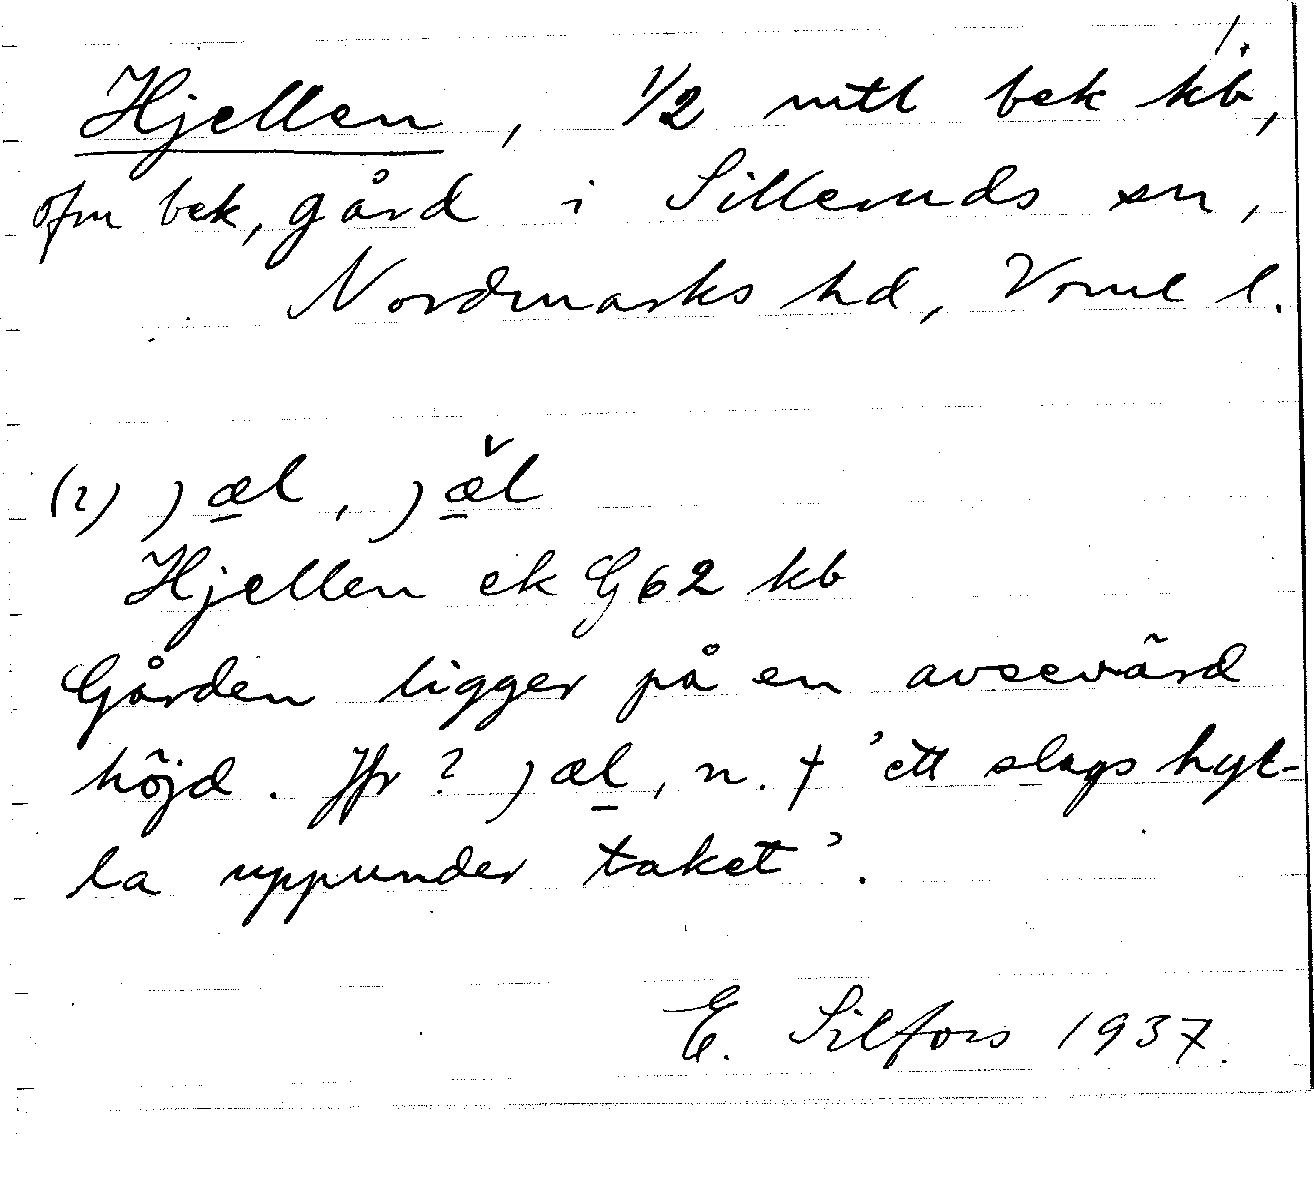 Hjellen, 1/2 mtl bek kb,
ofm bek, gård i Silleruds sn,
Nordmarks hd, Vrml l.
(2) jæl, jæ̌l
Hjellen ek G62 kb
Gården ligger på en avsevärd
höjd. Jfr? jæl, n. † 'ett slags hyl-
la uppunder taket'.
E. Silfors 1937.